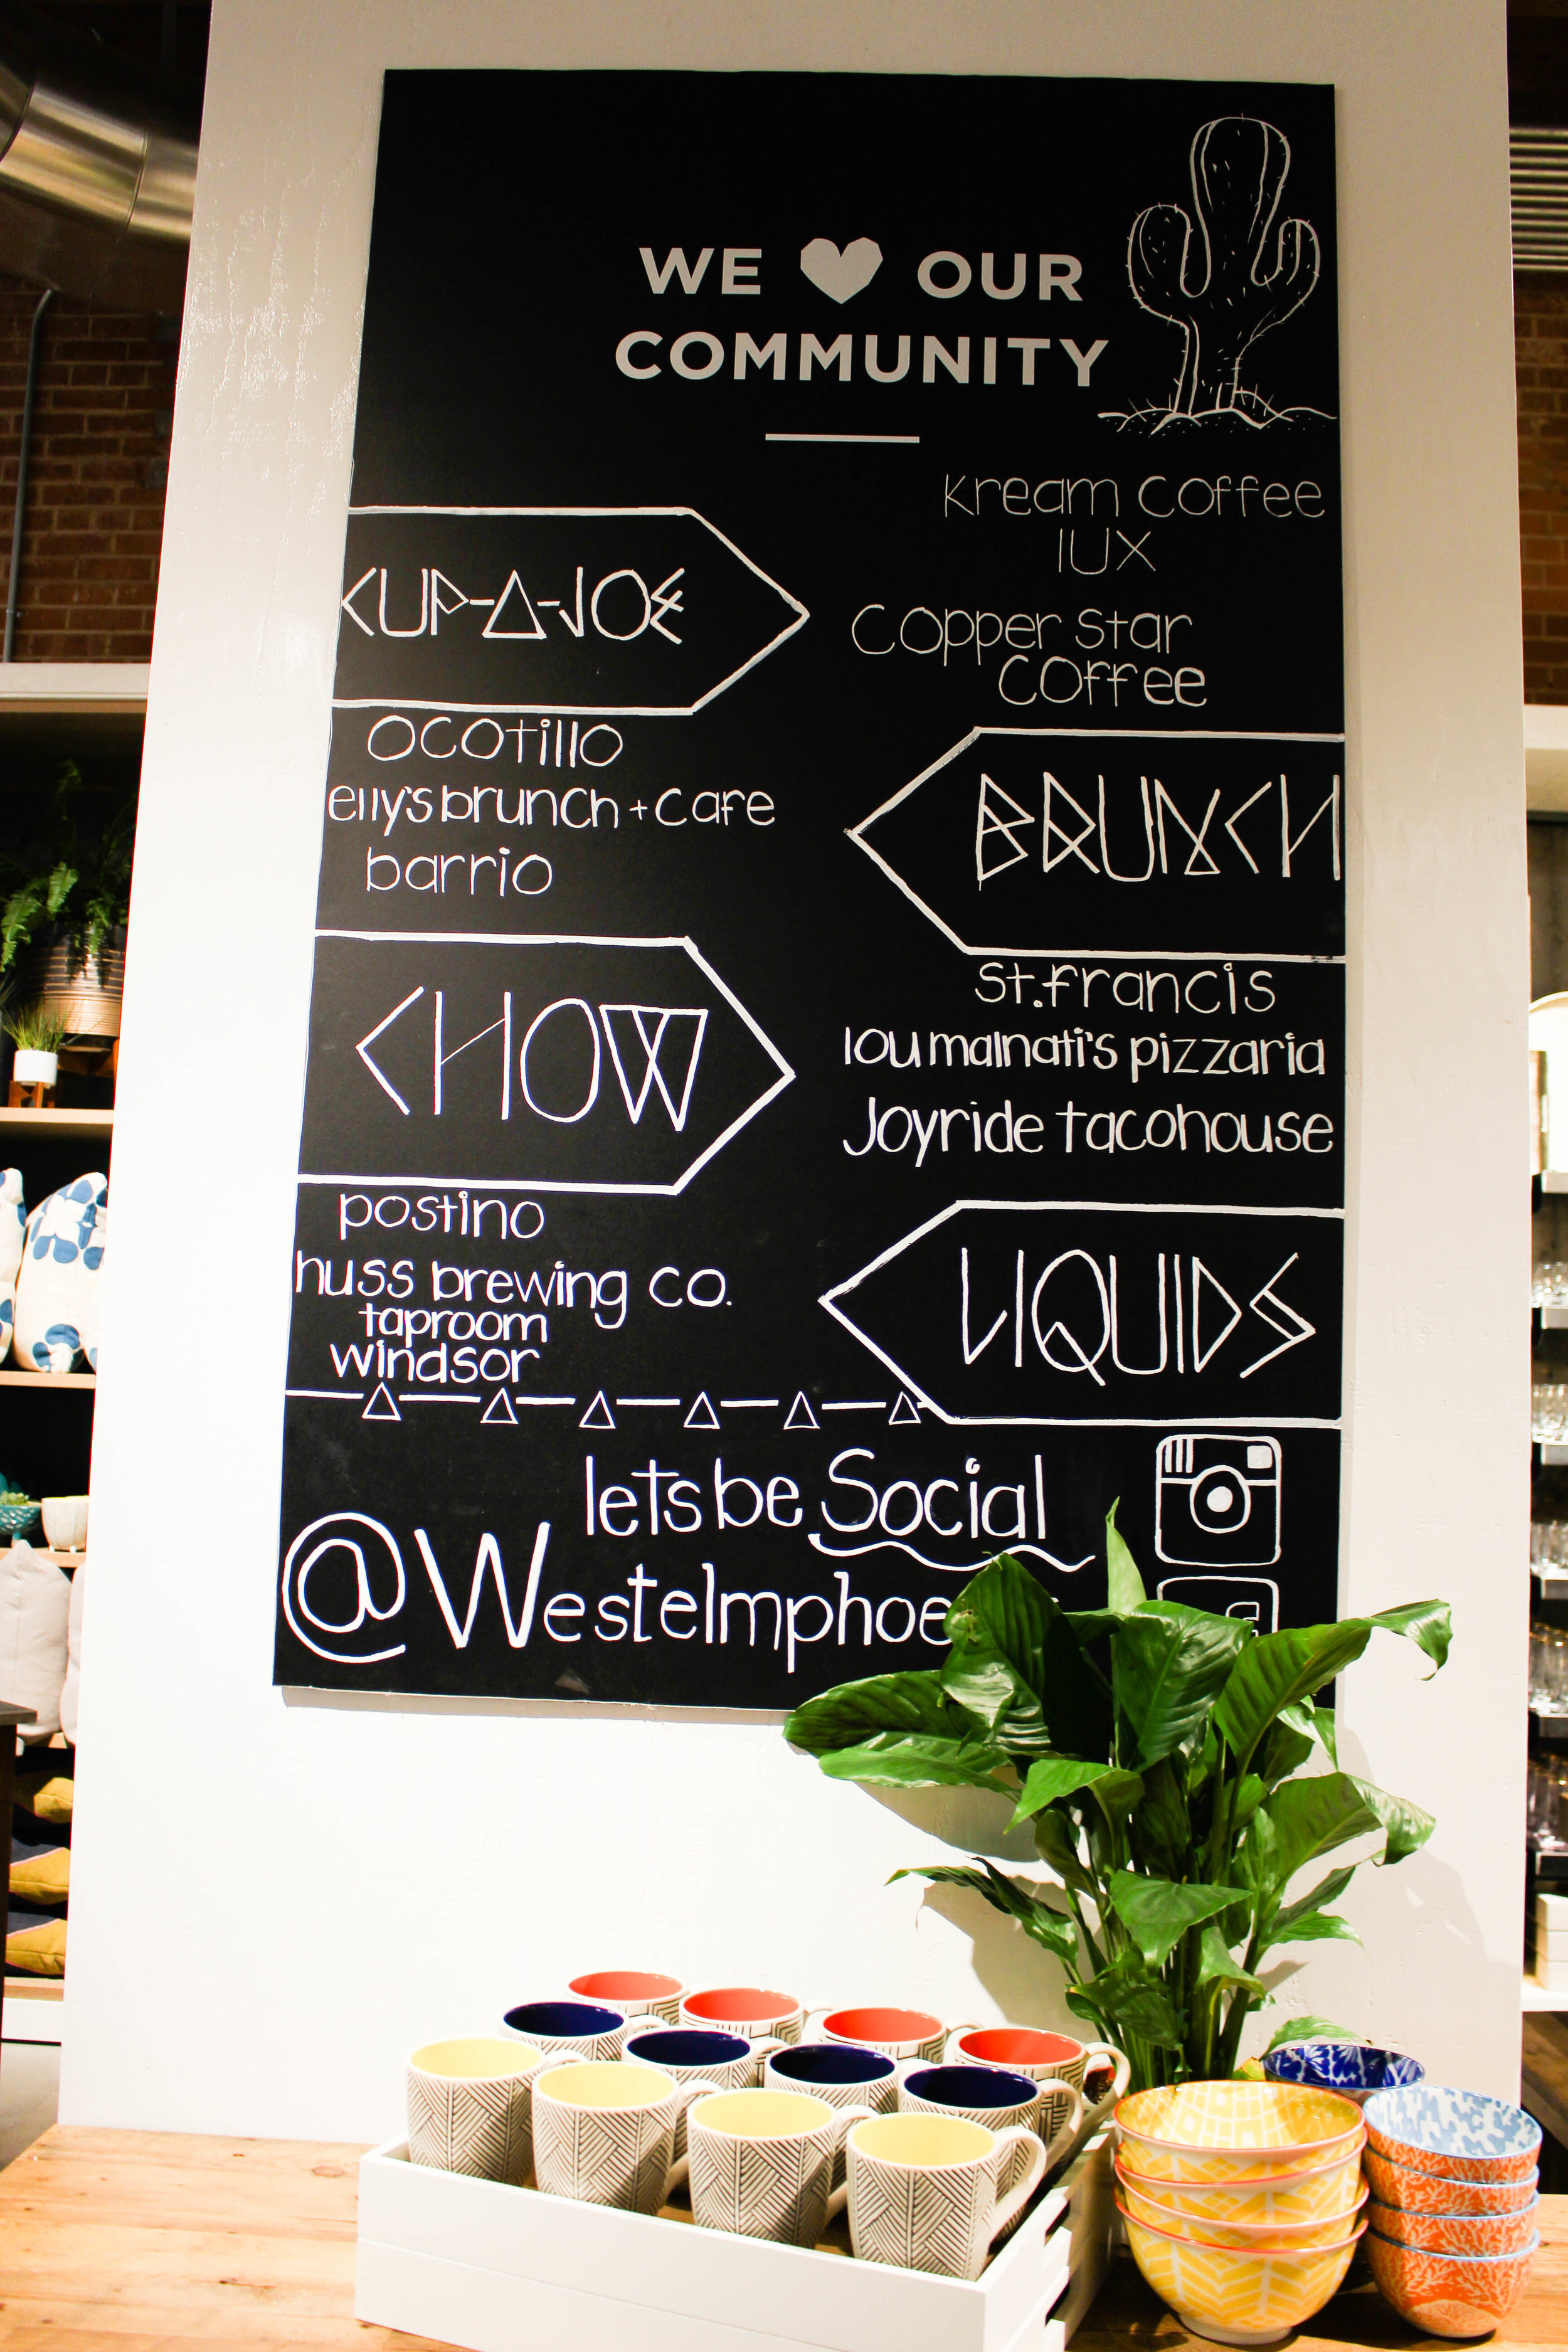 WE OUR
COMMUNITY
CUP-A-JOE
Kream Coffee
lux
Copper Star
Coffee
BRUNCH
ocotillo
elly's brunch + cafe
barrio
CHOW
st. francis
lou malnati's pizzaria
Joyride tacohouse
LIQUIDS
postino
huss brewing co.
taproom
windsor
lets be Social
@Westelmphoe